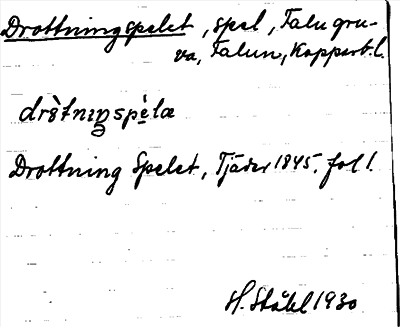 Drottningspelet, spel, Falu gru-
va, Falun, Kopparb. l.
dròtniŋspè̩læ
Drottning Spelet, Tjäder 1845. fol 1.
H. Ståhl 1930